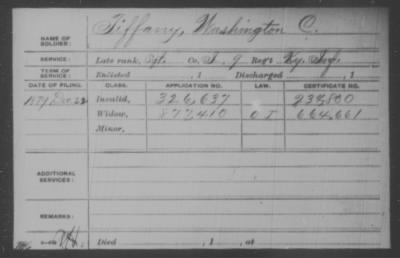 NAME OF SOLDIER: Tiffany, Washington C.
SERVICE: Late rank, Sgt. Co. I, 9 Reg't Ky. Inf.
TERM OF SERVICE: Enlisted , 1 Discharged , 1
DATE OF FILING. CLASS. APPLICATION NO. LAW. CERTIFICATE NO.
1879 Dec. 22 Invalid, 326,637 238,800
Widow, 877,410 664,661
Minor,
ADDITIONAL SERVICES:
REMARKS:
Died , 1 , at